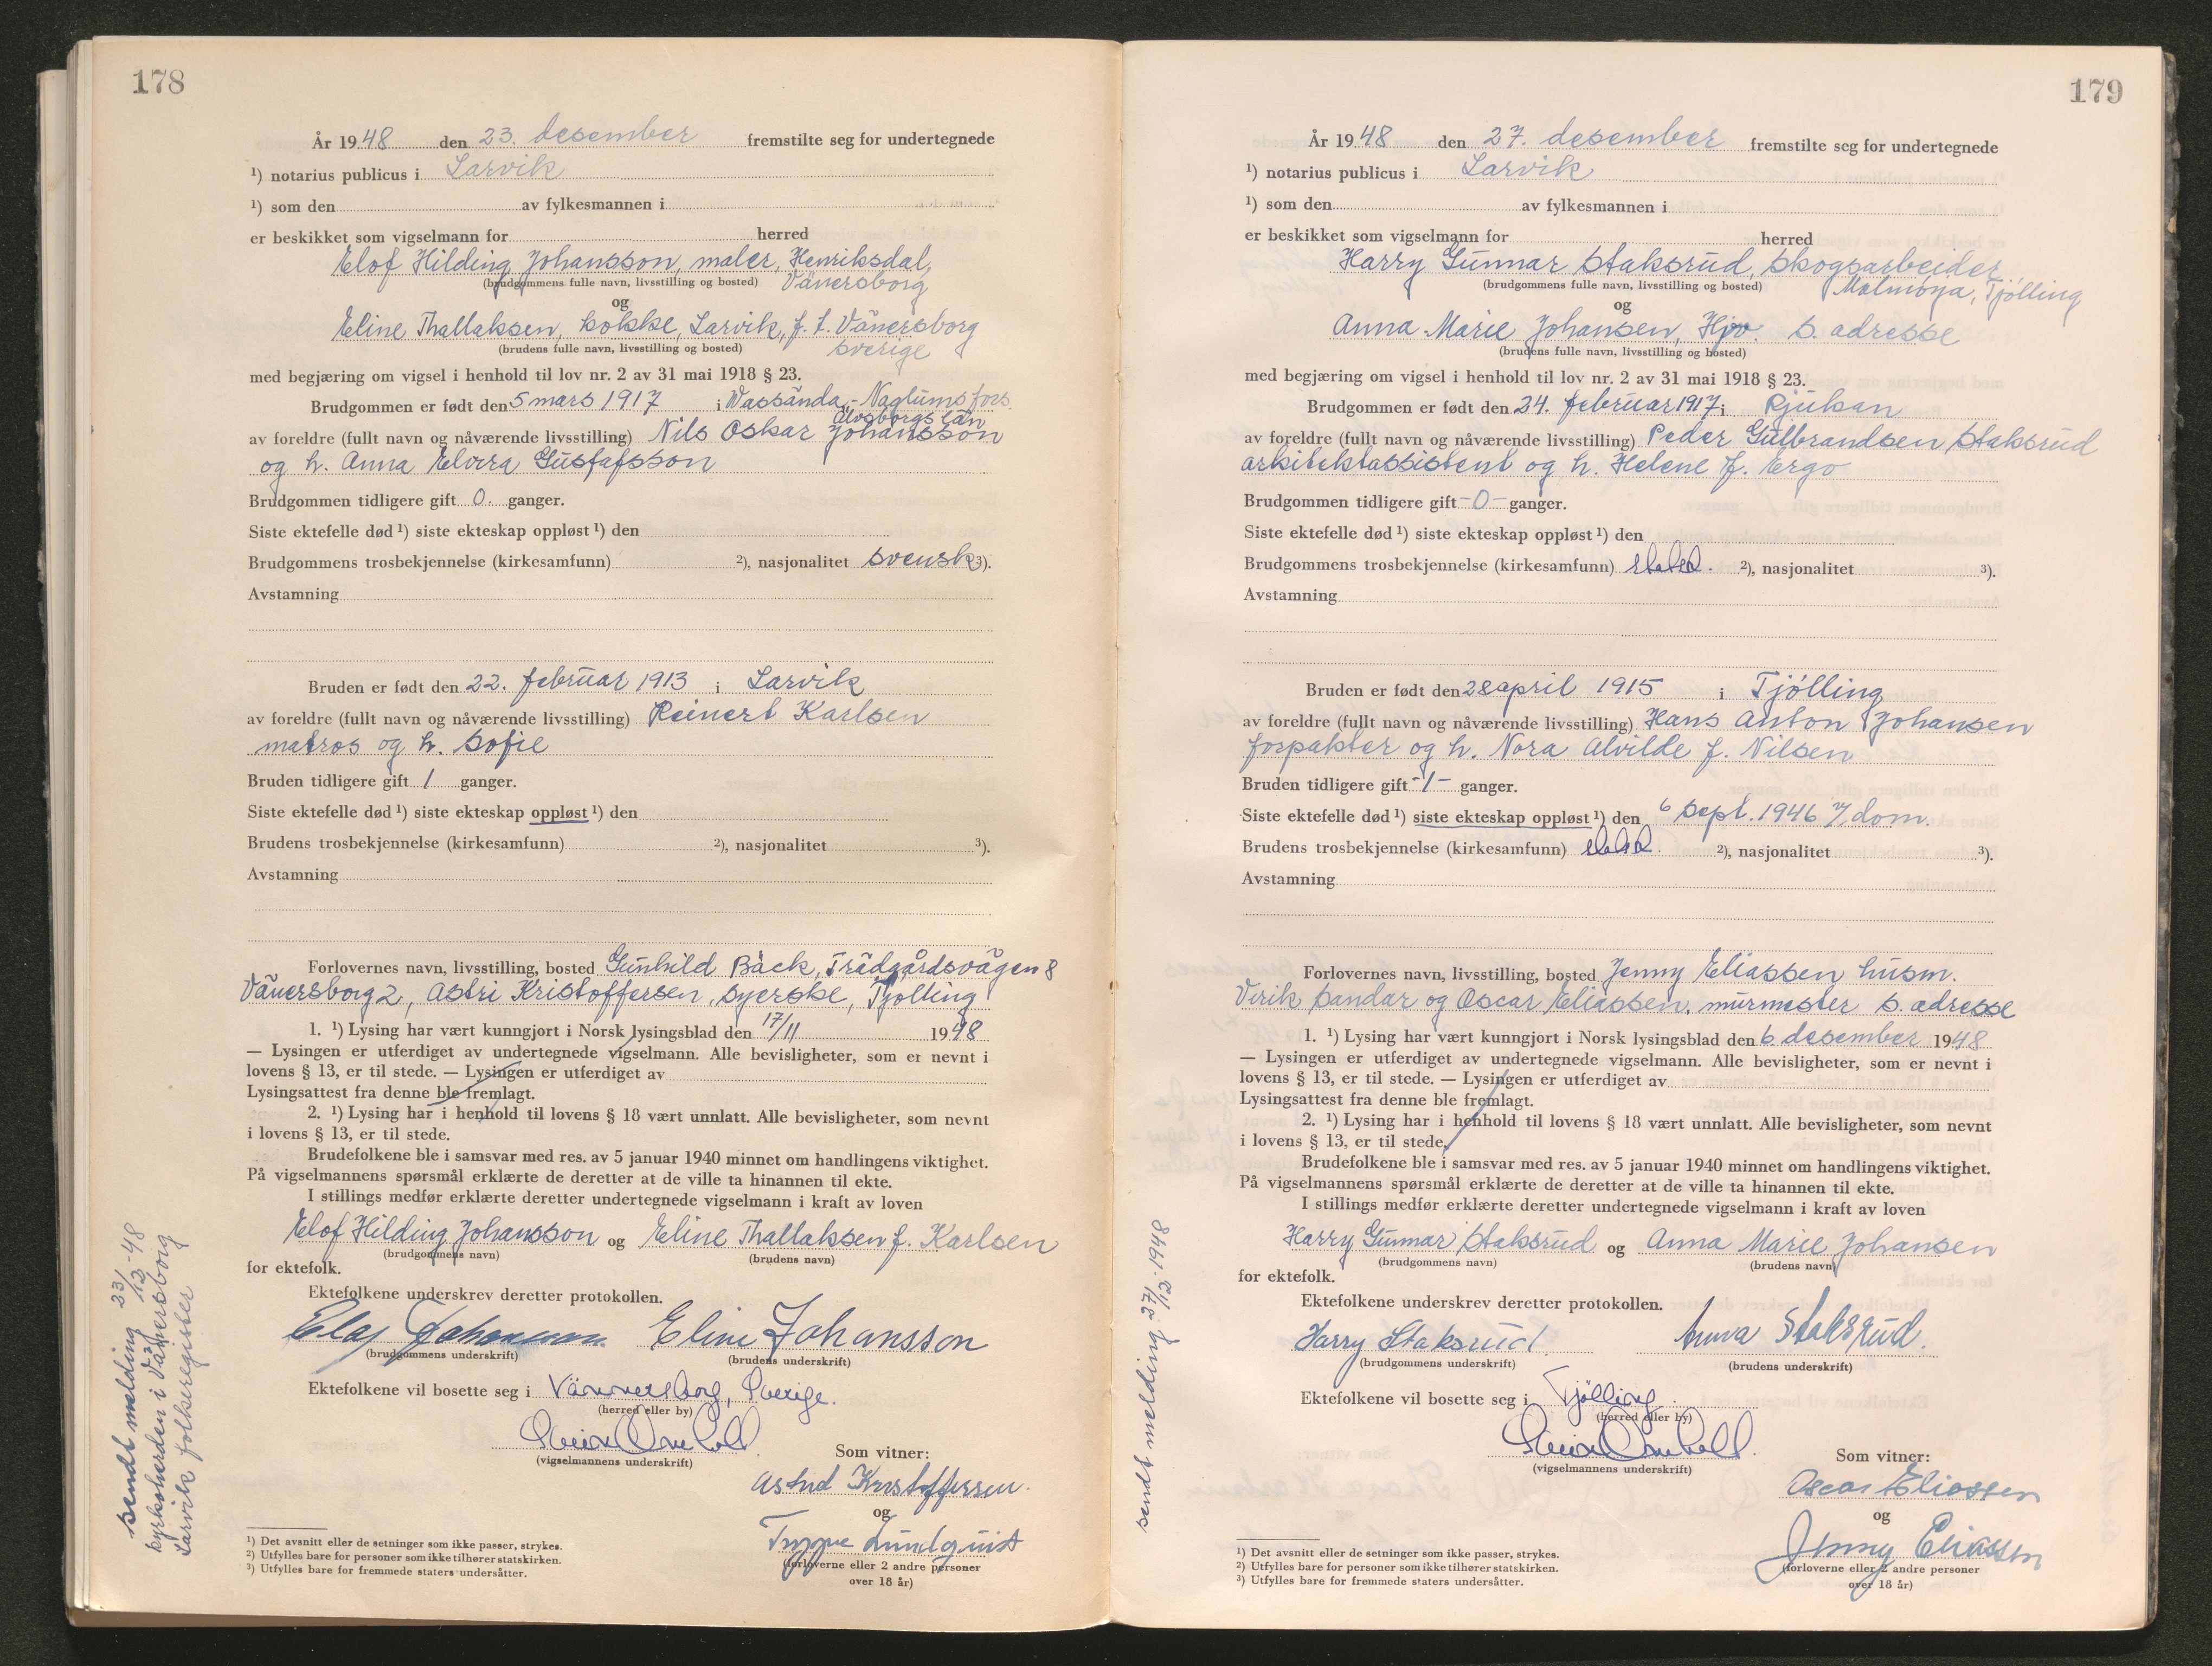 178
År 1948 den 23. desember fremstilte seg for undertegnede
¹) notarius publicus i Larvik
¹) som den av fylkesmannen i
er beskikket som vigselmann for herred
Elof Hilding Johansson, maler, Henriksdal,
(brudgommens fulle navn, livsstilling og bosted) Vänersborg
og
Eline Thallaksen, kokke, Larvik, f. t. Vänersborg
(brudens fulle navn, livsstilling og bosted) Sverige
med begjæring om vigsel i henhold til lov nr. 2 av 31 mai 1918 § 23.
Brudgommen er født den 5 mars 1917 i Wassända-Naglums fors.
Älvsborgs län
av foreldre (fullt navn og nåværende livsstilling) Nils Oskar Johansson
og h. Anna Elvira Gustafsson
Brudgommen tidligere gift 0. ganger.
Siste ektefelle død ¹) siste ekteskap oppløst ¹) den
Brudgommens trosbekjennelse (kirkesamfunn) ²), nasjonalitet svensk ³).
Avstamning
Bruden er født den 22. februar 1913 i Larvik
av foreldre (fullt navn og nåværende livsstilling) Reinert Karlsen
matros og h. Sofie
Bruden tidligere gift 1 ganger.
Siste ektefelle død ¹) siste ekteskap oppløst ¹) den
Brudens trosbekjennelse (kirkesamfunn) ²), nasjonalitet ³).
Avstamning
Forlovernes navn, livsstilling, bosted Gunhild Bäck, Trädgårdsvägen 8
Vänersborg 2, Astri Kristoffersen, syerske, Tjølling
1. ¹) Lysing har vært kunngjort i Norsk lysingsblad den 17/11 1948
— Lysingen er utferdiget av undertegnede vigselmann. Alle bevisligheter, som er nevnt i
lovens § 13, er til stede. — Lysingen er utferdiget av
Lysingsattest fra denne ble fremlagt.
2. ¹) Lysing har i henhold til lovens § 18 vært unnlatt. Alle bevisligheter, som nevnt
i lovens § 13, er til stede.
Brudefolkene ble i samsvar med res. av 5 januar 1940 minnet om handlingens viktighet.
På vigselmannens spørsmål erklærte de deretter at de ville ta hinannen til ekte.
I stillings medfør erklærte deretter undertegnede vigselmann i kraft av loven
Elof Hilding Johansson og Eline Thallaksen f. Karlsen
(brudgommens navn) (brudens navn)
for ektefolk.
Ektefolkene underskrev deretter protokollen.
Elof Johansson Eline Johansson
(brudgommens underskrift) (brudens underskrift)
Ektefolkene vil bosette seg i Vännersborg, Sverige.
(herred eller by)
(vigselmannens underskrift)
Som vitner:
Astrid Kristoffersen.
og
Lundquist
(forloverne eller 2 andre personer
over 18 år)
sendt melding 23/12-48
kyrkoherden i Vänersborg
Larvik folkeregister
¹) Det avsnitt eller de setninger som ikke passer, strykes.
²) Utfylles bare for personer som ikke tilhører statskirken.
³) Utfylles bare for fremmede staters undersåtter.
179
År 1948 den 27. desember fremstilte seg for undertegnede
¹) notarius publicus i Larvik
¹) som den av fylkesmannen i
er beskikket som vigselmann for herred
Harry Gunnar Staksrud, skogsarbeider
(brudgommens fulle navn, livsstilling og bosted) Malmøya, Tjølling
og
Anna Marie Johansen, Hjv. s. adresse
(brudens fulle navn, livsstilling og bosted)
med begjæring om vigsel i henhold til lov nr. 2 av 31 mai 1918 § 23.
Brudgommen er født den 24. februar 1917 i Rjukan
av foreldre (fullt navn og nåværende livsstilling) Peder Gulbrandsen Staksrud
arkitektassistent og h. Helene f. Ergo
Brudgommen tidligere gift -0- ganger.
Siste ektefelle død ¹) siste ekteskap oppløst ¹) den
Brudgommens trosbekjennelse (kirkesamfunn) ²), nasjonalitet ³).
Avstamning
Bruden er født den 28 april 1915 i Tjølling
av foreldre (fullt navn og nåværende livsstilling) Hans Anton Johansen
forpakter og h. Nora Alvilde f. Nilsen
Bruden tidligere gift -1- ganger.
Siste ektefelle død ¹) siste ekteskap oppløst ¹) den 6 sept. 1946 v/ dom.
Brudens trosbekjennelse (kirkesamfunn) ²), nasjonalitet ³).
Avstamning
Forlovernes navn, livsstilling, bosted Jenny Eliassen husm.
Virik Sandar og Oscar Eliassen, murmester s. adresse
1. ¹) Lysing har vært kunngjort i Norsk lysingsblad den 6 desember 1948
— Lysingen er utferdiget av undertegnede vigselmann. Alle bevisligheter, som er nevnt i
lovens § 13, er til stede. — Lysingen er utferdiget av
Lysingsattest fra denne ble fremlagt.
2. ¹) Lysing har i henhold til lovens § 18 vært unnlatt. Alle bevisligheter, som nevnt
i lovens § 13, er til stede.
Brudefolkene ble i samsvar med res. av 5 januar 1940 minnet om handlingens viktighet.
På vigselmannens spørsmål erklærte de deretter at de ville ta hinannen til ekte.
I stillings medfør erklærte deretter undertegnede vigselmann i kraft av loven
Harry Gunnar Staksrud og Anna Marie Johansen
(brudgommens navn) (brudens navn)
for ektefolk.
Ektefolkene underskrev deretter protokollen.
Harry Staksrud. Anna Staksrud.
(brudgommens underskrift) (brudens underskrift)
Ektefolkene vil bosette seg i Tjølling.
(herred eller by)
(vigselmannens underskrift)
Som vitner:
Oscar Eliassen
og
Jenny Eliassen
(forloverne eller 2 andre personer
over 18 år)
sendt melding 27/12-1948
¹) Det avsnitt eller de setninger som ikke passer, strykes.
²) Utfylles bare for personer som ikke tilhører statskirken.
³) Utfylles bare for fremmede staters undersåtter.